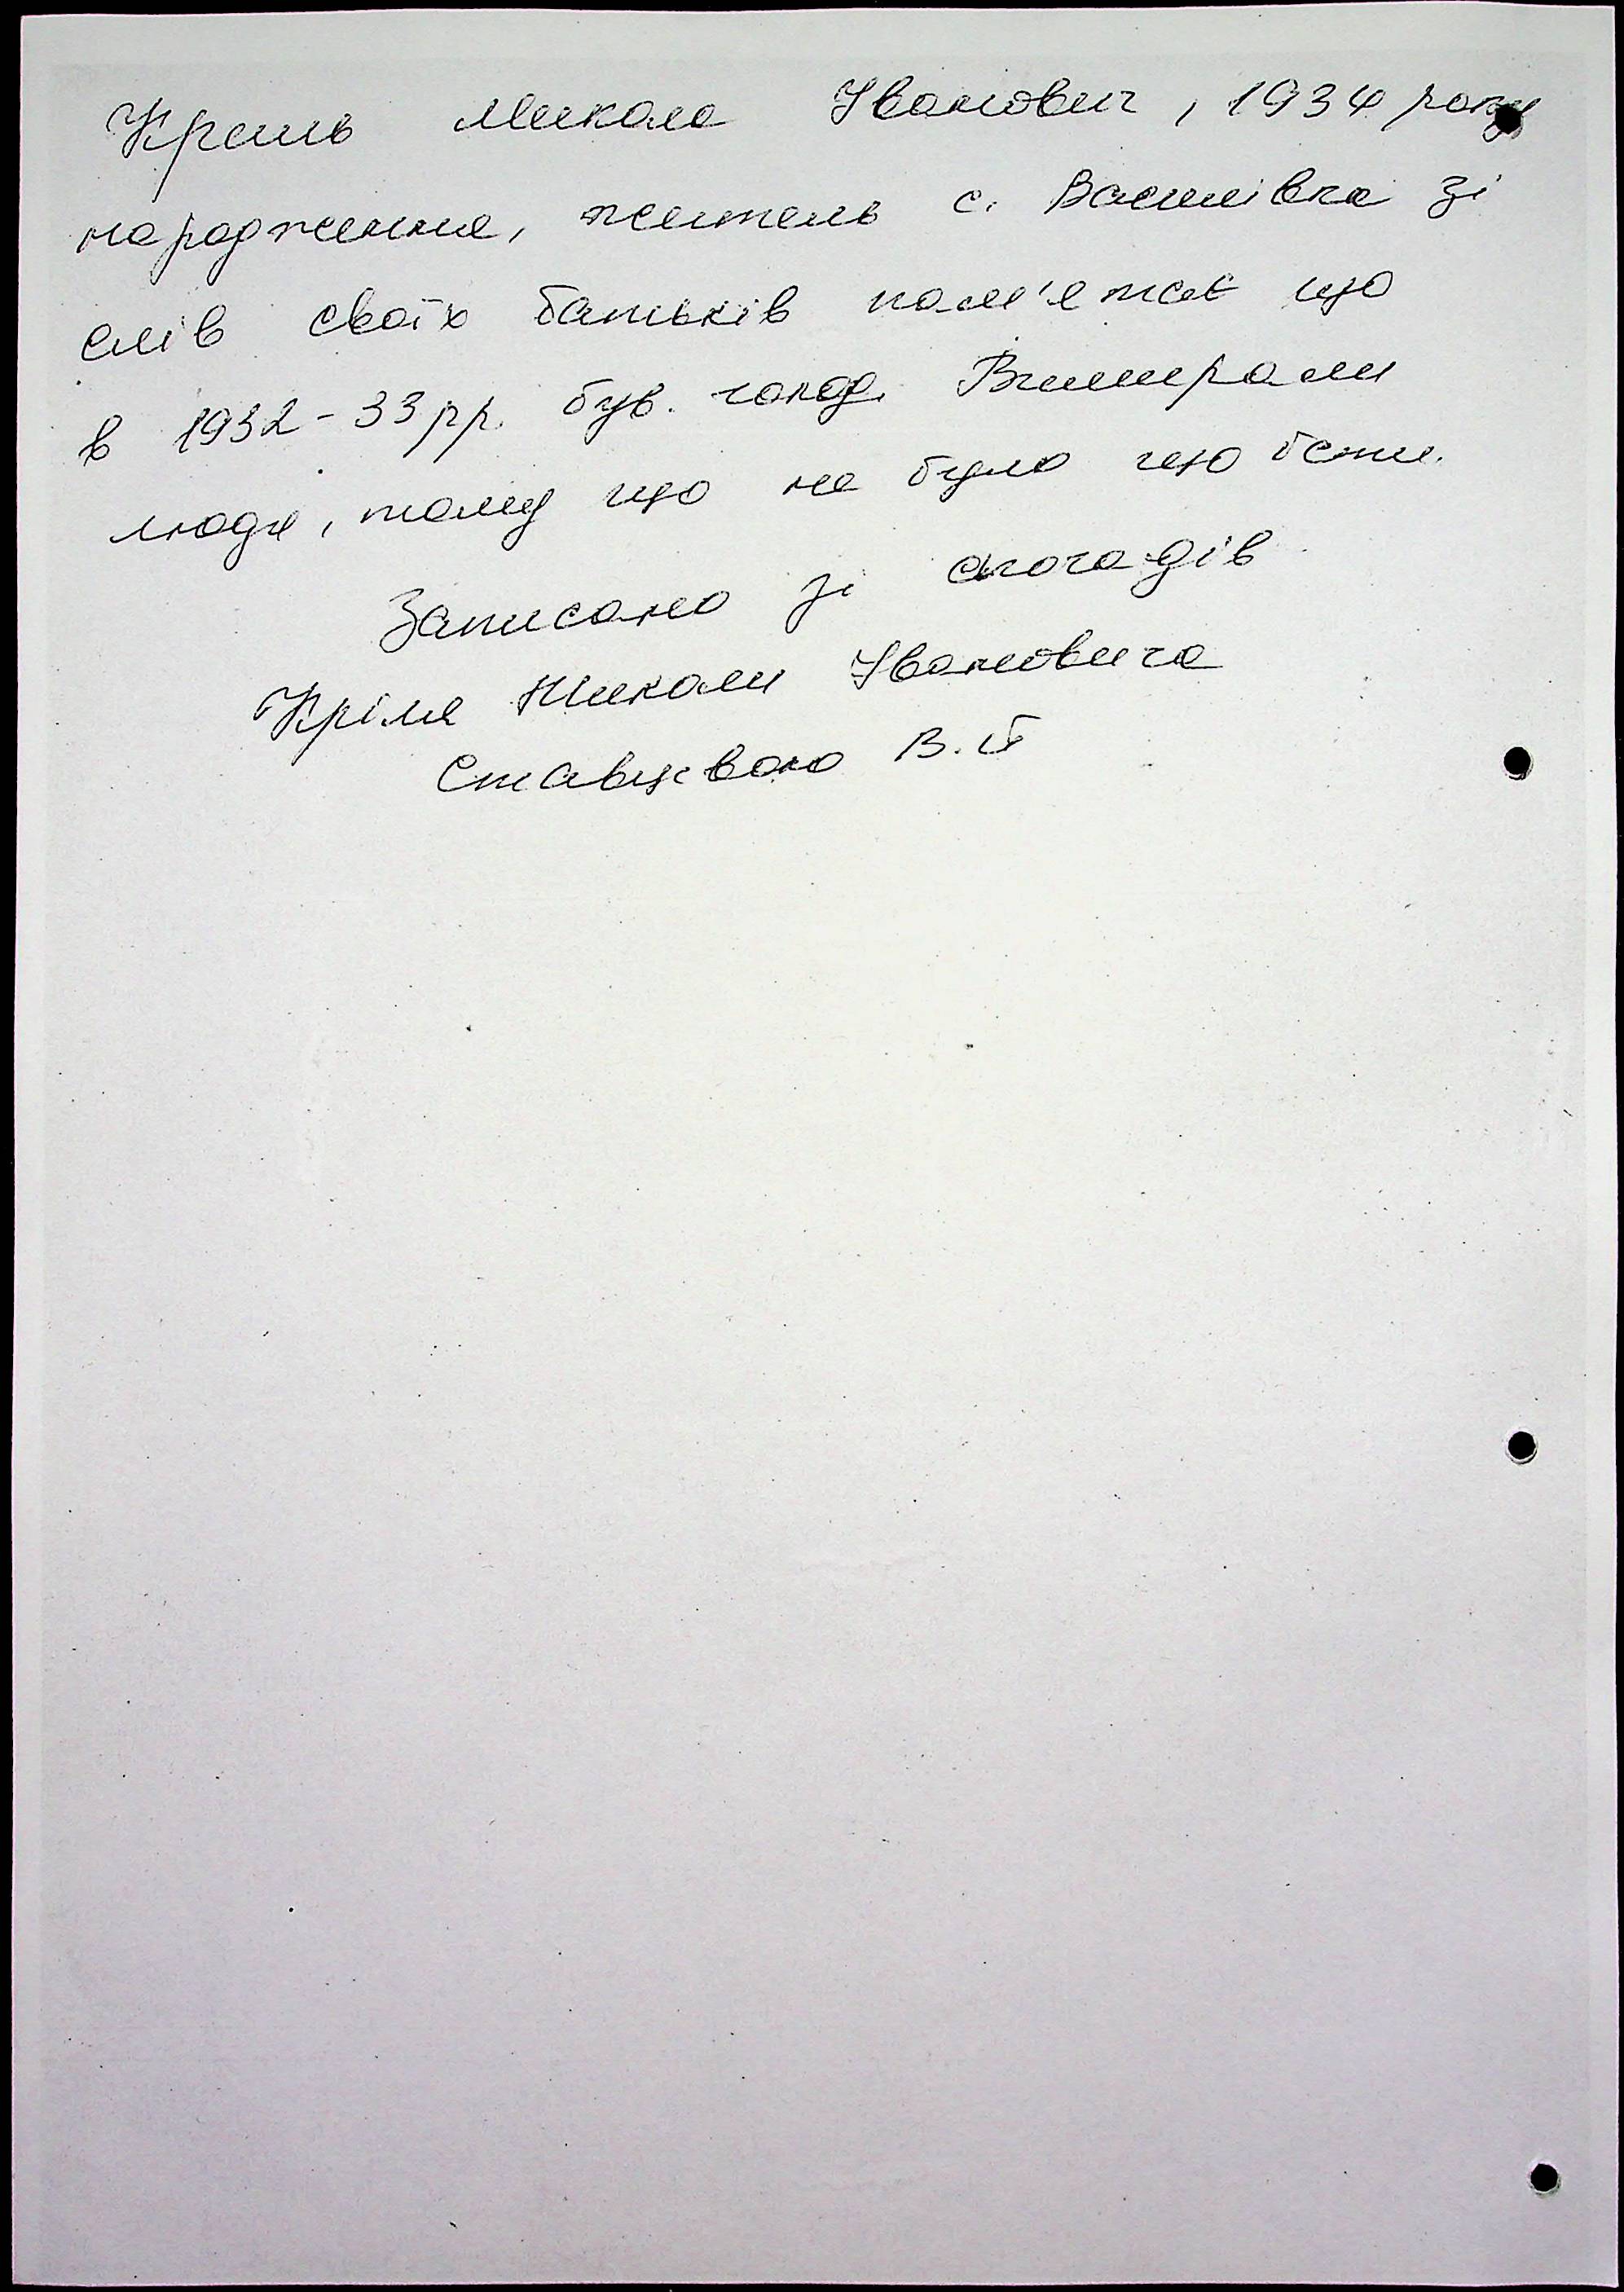 Кріль Микола Іванович, 1934 року
народження, житель с. Василівка зі
слів своїх батьків пам'ятає що
в 1932-33 рр. був голод. Вимирали
люди, тому що не було що їсти.
Записано зі спогадів
Кріля Миколи Івановича
В.